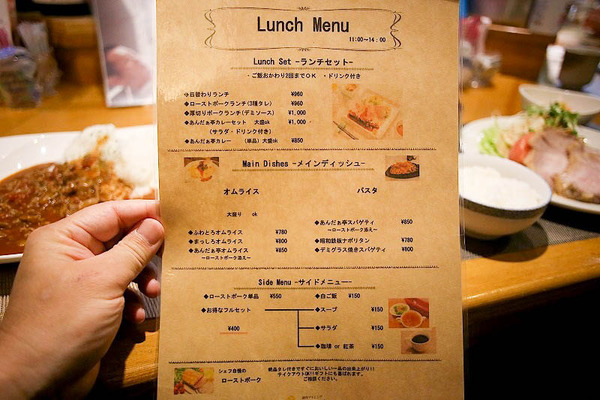 Lunch Menu
11:00～14：00
Lunch Set -ランチセット-
・ご飯おかわり2回までOK ・ドリンク付き
◇日替わりランチ ¥960
◆ローストポークランチ(3種タレ) ¥960
◆厚切りポークランチ(デミソース) ¥1,000
◆あんだぁ亭カレーセット 大盛ok ¥1,000
(サラダ・ドリンク付き)
◆あんだぁ亭カレー (単品) 大盛ok ¥850
Main Dishes -メインディッシュ-
オムライス パスタ
大盛り ok
◆あんだぁ亭スパゲティ ¥850
～ローストポーク添え～
◆ふわとろオムライス ¥780
◆昭和鉄板ナポリタン ¥780
◆まっしろオムライス ¥800
◆デミグラス焼きスパゲティ ¥800
◆あんだぁ亭オムライス ¥850
～ローストポーク添え～
Side Menu -サイドメニュー-
◆ローストポーク単品 ¥550 ◆白ご飯 ¥150
◆お得なフルセット ◆スープ ¥150
¥400 ◆サラダ ¥150
◆珈琲 or 紅茶 ¥150
シェフ自慢の
ローストポーク
絶品タレ付きですぐにおいしい一品の出来上がり!!
テイクアウトOK!!ギフトにも喜ばれます。
ご相談ください。